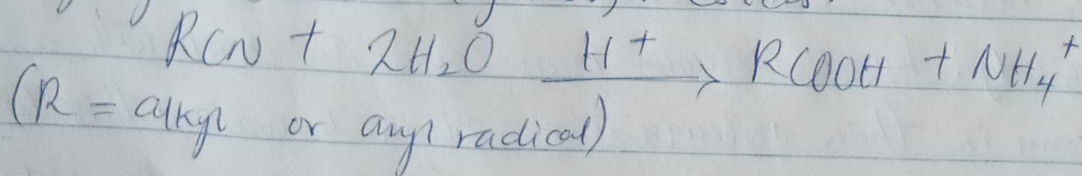 RCN + 2H₂O —H⁺→ RCOOH + NH₄⁺
(R = alkyl or aryl radical)